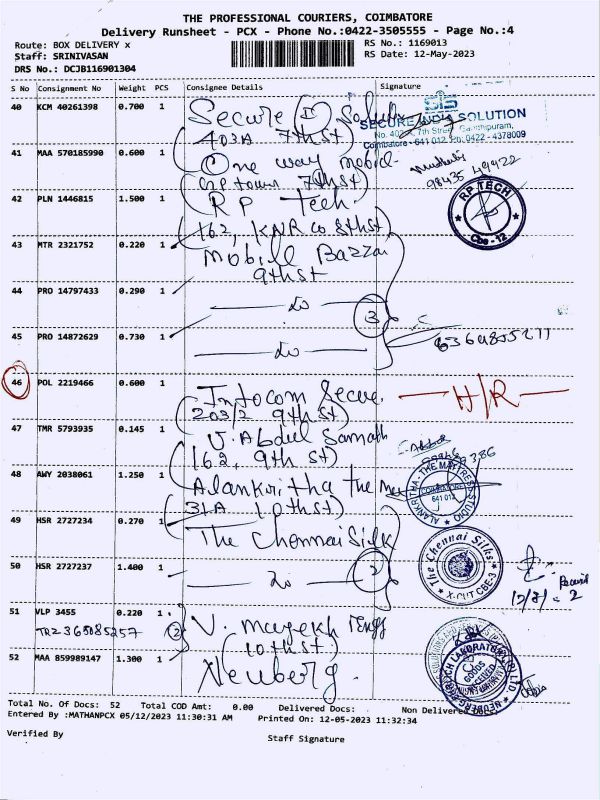 THE PROFESSIONAL COURIERS, COIMBATORE
Delivery Runsheet - PCX - Phone No.:0422-3505555 - Page No.:4
Route: BOX DELIVERY x
RS No.: 1169013
Staff: SRINIVASAN
RS Date: 12-May-2023
DRS No.: DCJB116901304
S No Consignment No Weight PCS Consignee Details Signature
40 KCM 40261398 0.700 1 Secure
403A 7th st)
SECURE INDIA SOLUTION
No. 402, 7th Street, Gandhipuram,
Coimbatore - 641 012. Ph: 0422 - 4378009
41 MAA 570185990 0.600 1 One way mobile
7th st)
98435 49422
42 PLN 1446815 1.500 1 R P Tech.
162, KNR 8th st)
RP TECH
Cbe - 12
43 MTR 2321752 0.220 1 Mobile Bazzar
9th st
44 PRO 14797433 0.290 1 — do —
3
45 PRO 14872629 0.730 1 — do —
46 POL 2219466 0.600 1 Infocom Secure.
203/2 9th st)
H/R
47 TMR 5793935 0.145 1 V. Abdul Samath
162, 9th st)
48 AWY 2038061 1.250 1 Alankritha The
31A 10th st)
ALANKRITHA - THE MATTRESS STUDIO
COIMBATORE
641 012
49 HSR 2727234 0.270 1 The Chennai Silk
50 HSR 2727237 1.400 1 — do —
2
The Chennai Silks
X-CUT CBE-3
51 VLP 3455 0.220 1 V. mayekh
TRZ365085257 2
(10th st)
52 MAA 859989147 1.300 1 Neuberg.
GOODS
Total No. Of Docs: 52 Total COD Amt: 0.00 Delivered Docs: Non Delivered Docs:
Entered By :MATHANPCX 05/12/2023 11:30:31 AM Printed On: 12-05-2023 11:32:34
Verified By
Staff Signature